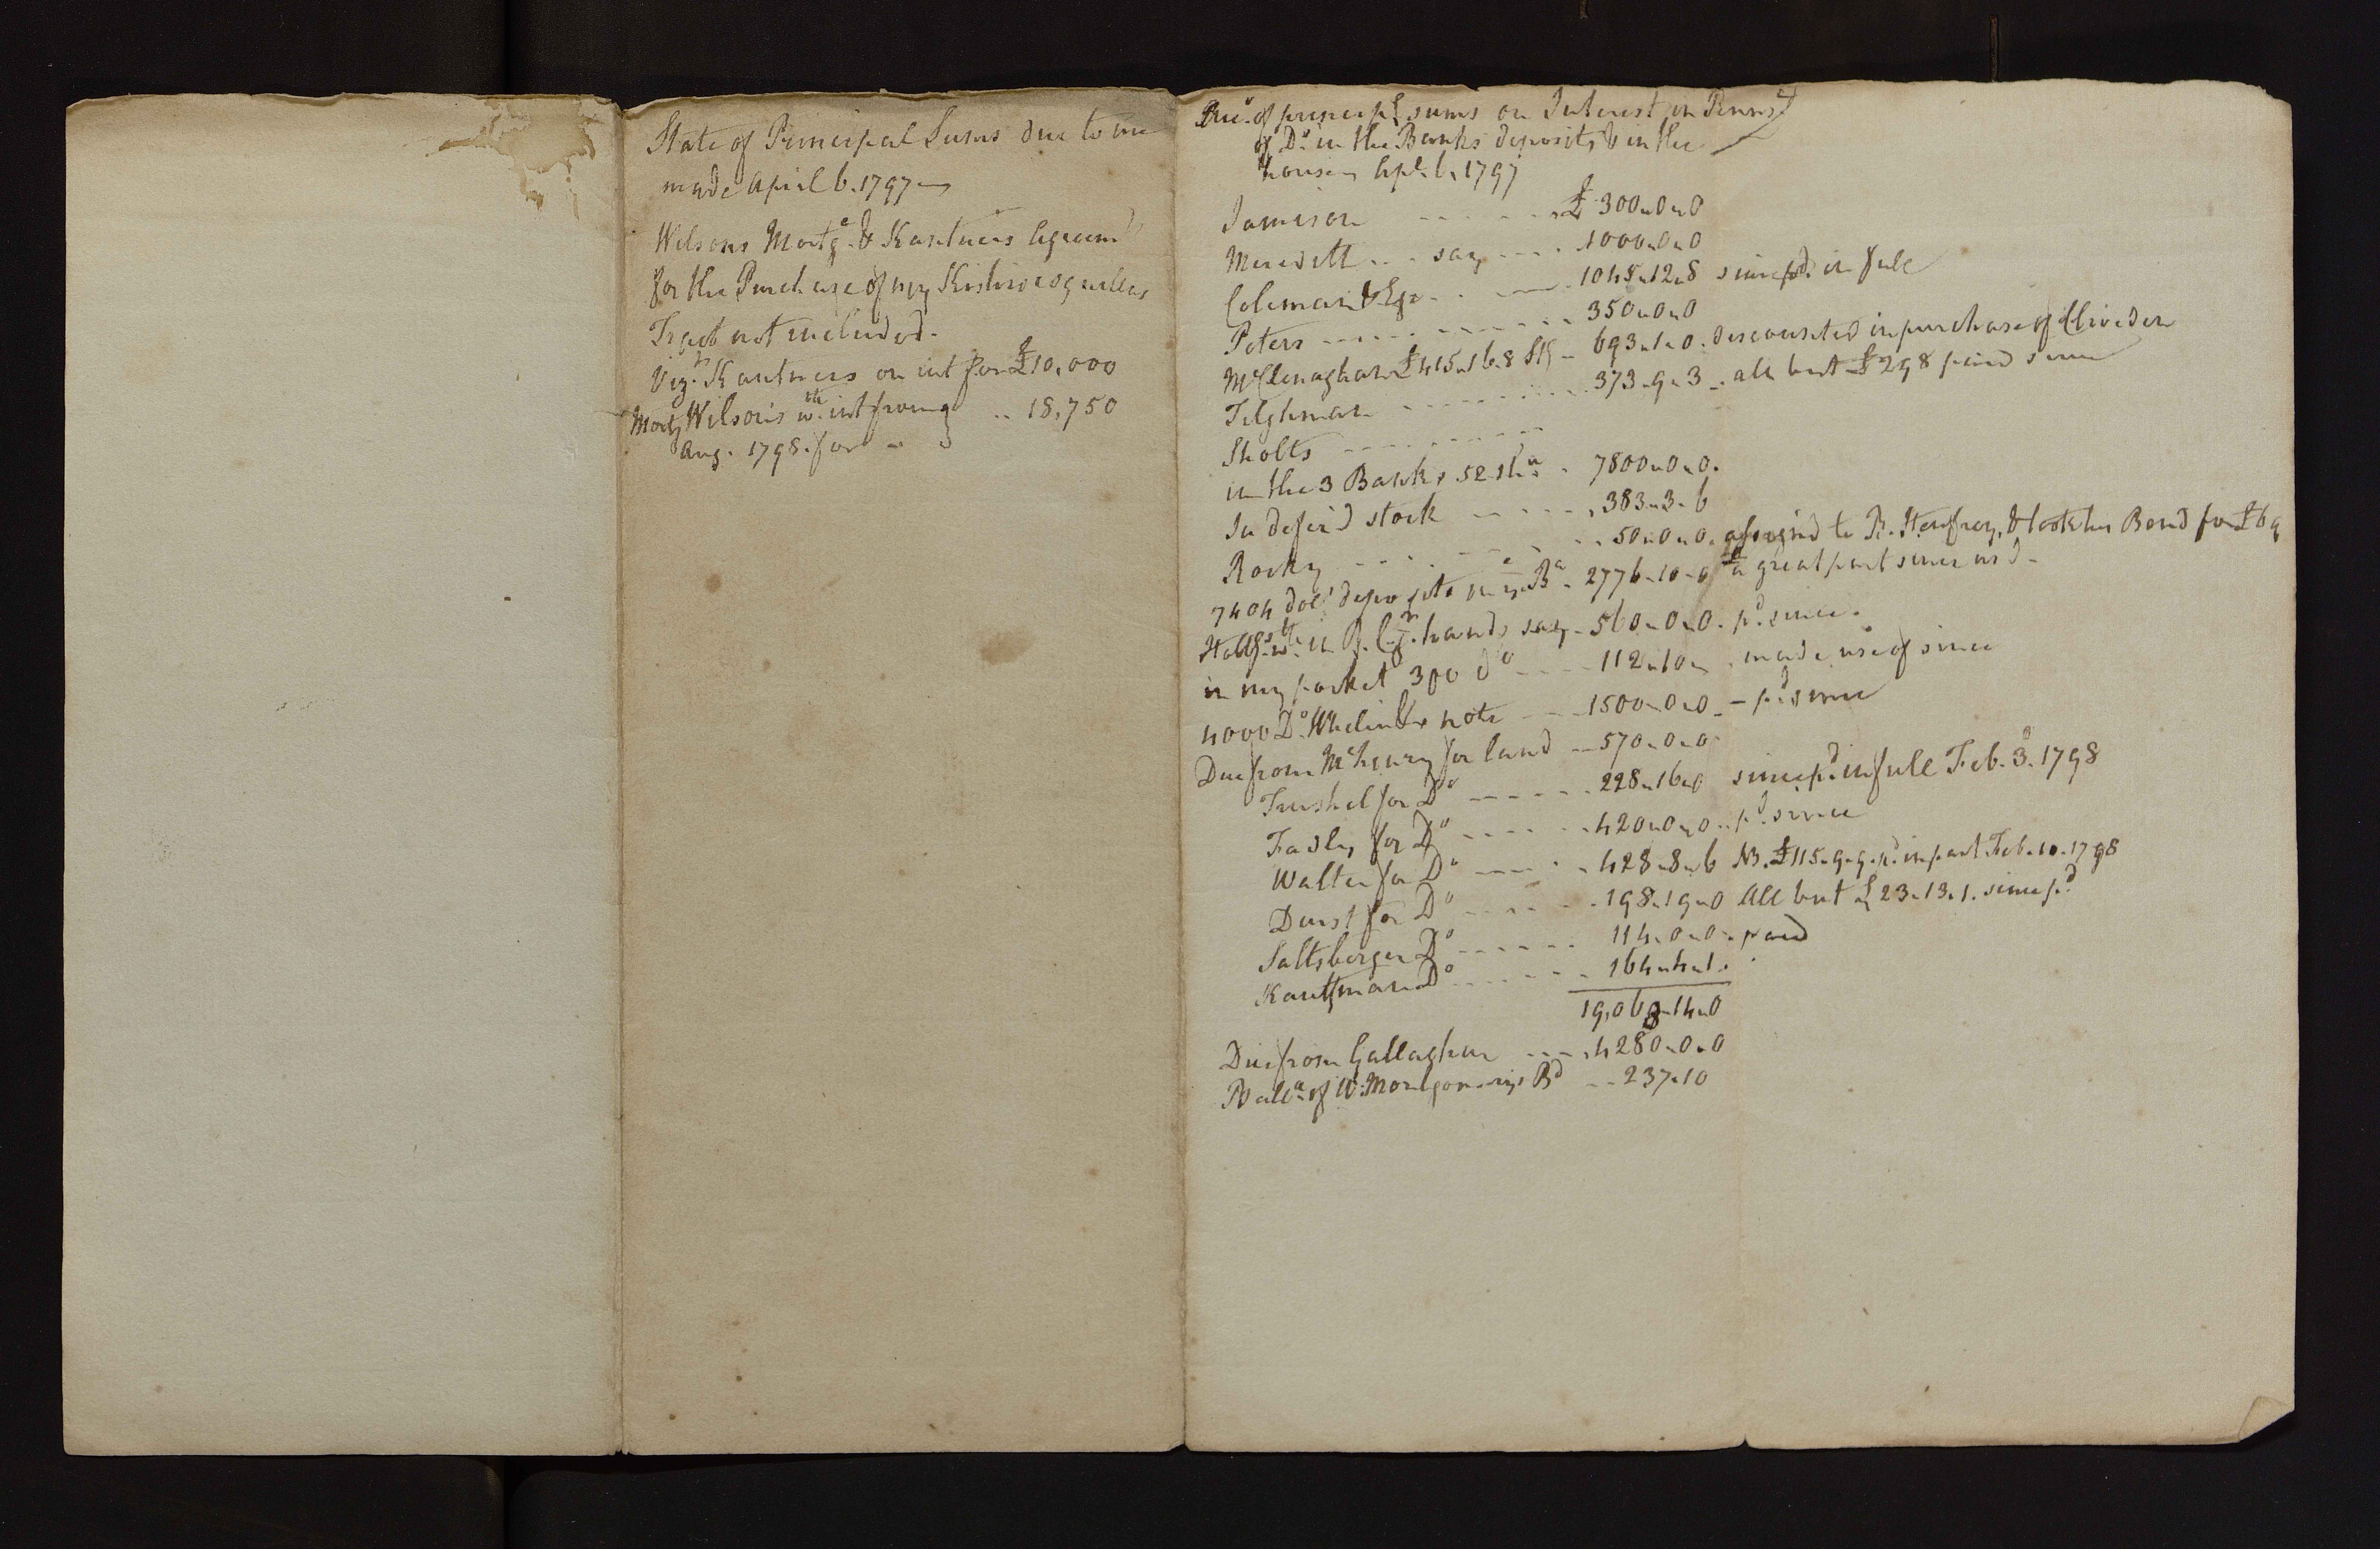 State of Principal Sums due to me
made April 6. 1797
Wilsons Mortg.e & Kantners Agreem.t
for the Purchase of my Kishicoquillas
Tract not included.
Viz.t Kantners on int for £10,000
Mortg Wilson's w.th int from .. 18,750
Aug. 1798. for
of princip.l sums on Interest in Penns.a
of D.o in the Banks deposits & in the
house Apl. 6, 1797
Jamison £ 300-0-0
Meredith say 1000-0-0
Coleman & 1045-12-8 since p.d in full
Peters 350-0-0
McClenaghan £415-16-8 St.g 693-1-0. discounted in purchase of Cliveden
Tilghman 373-9-3 all but £298 paid since
Sholts
in the 3 Banks 52 sh.a 7800-0-0.
In defer'd stock 383-3-6
Rocky 50-0-0. assigned to R. & took his Bond for £69
7404 dol.s deposite in y.e B.a 2776-10-0 a great part since us'd
w.th in B. C. J.r hands say 560-0-0. p.d since.
in my pocket 300 d.o 112-10 made use of since
4000 D.o Whelin &c note 1500-0-0 p.d since
Due from McHenry for land 570-0-0
Trushel for D.o 228-16-0 since p.d in full Feb. 3. 1798
Fasly for D.o 420-0-0. p.d since
Walter for D.o 428-8-6 NB. £115-9-9. p.d in part Feb. 10. 1798
Durst for D.o 198-19-0 All but £23-13-1. since p.d
Saltsberger D.o 114-0-0. paid
Kauffman D.o 164-4-1.
19,068-14-0
Due from Gallagher 4280-0-0
Bal.a of W. Montgomerys B.d 237-10